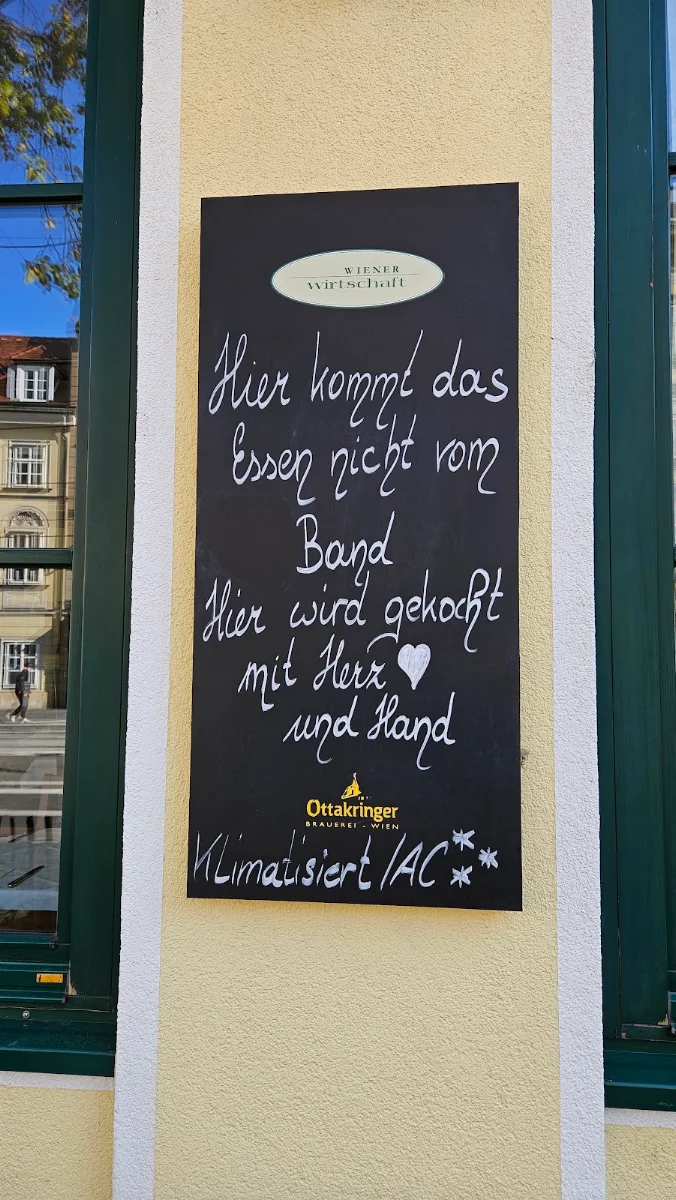 WIENER
wirtschaft
Hier kommt das
Essen nicht vom
Band
Hier wird gekocht
mit Herz
und Hand
Ottakringer
BRAUEREI - WIEN
Klimatisiert / AC